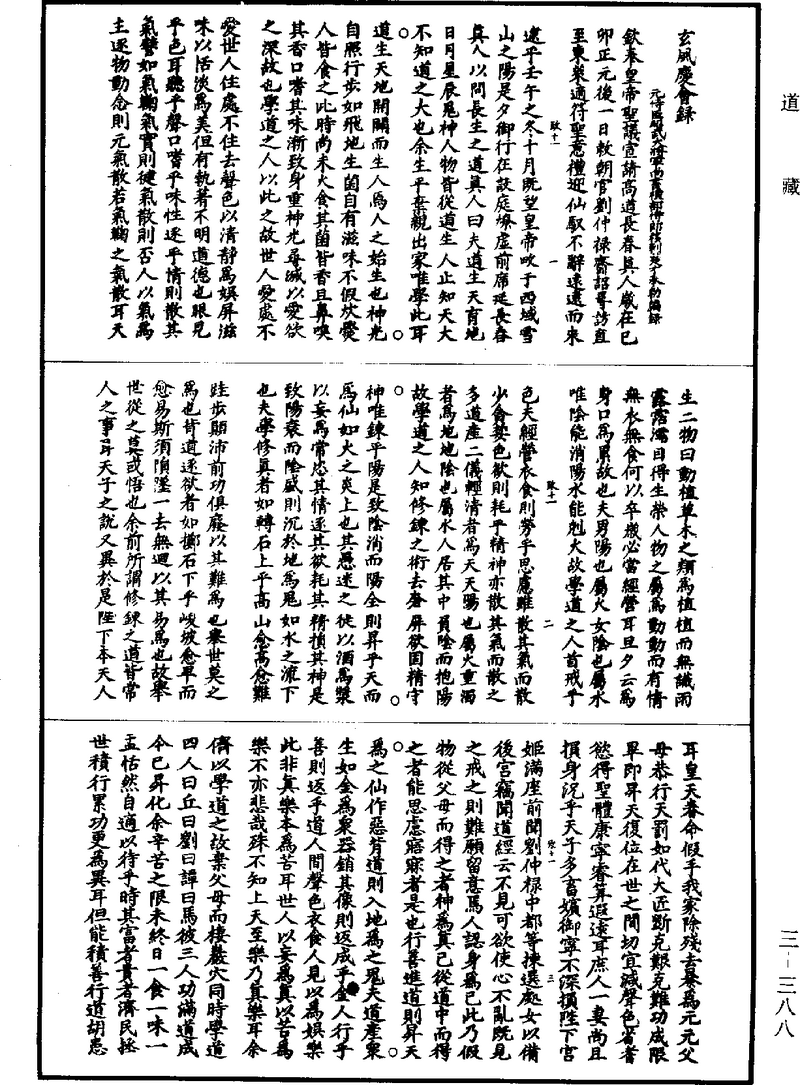 道藏
玄風慶會錄
元侍臣昭武大將軍尚書禮部侍郎移剌楚才奉勑編錄
欽奉皇帝聖議宣請高道長春真人歲在已
卯正元後一日敕朝官劉仲祿齎詔尋訪直
至東萊適符聖意禮迎仙馭不辭遠遠而來
逮乎壬午之冬十月既望皇帝畋于西域雪
山之陽是夕御行在設庭燎虛前席延長春
真人以問長生之道真人曰夫道生天育地
日月星辰鬼神人物皆從道生人止知天大
不知道之大也余生平棄親出家唯學此耳
道生天地開闢而生人焉人之始生也神光
自照行步如飛地生菌自有滋味不假炊爨
人皆食之此時尚未火食其菌皆香且鼻嗅
其香口嗜其味漸致身重神光尋滅以愛欲
之深故也學道之人以此之故世人愛處不
愛世人住處不住去聲色以清靜為娛屏滋
味以恬淡為美但有執著不明道德也眼見
乎色耳聽乎聲口嗜乎味性逐乎情則散其
氣譬如氣鞠氣實則健氣散則否人以氣為
主逐物動念則元氣散若氣鞠之氣散耳天
致十一 一
生二物曰動植草木之類為植植而無識雨
露霑濡自得生榮人物之屬為動動而有情
無衣無食何以卒歲必當經營耳旦夕云為
身口為累故也夫男陽也屬火女陰也屬水
唯陰能消陽水能剋火故學道之人首戒乎
色夫經營衣食則勞乎思慮雖散其氣而散
少貪婪色欲則耗乎精神亦散其氣而散之
多道產二儀輕清者為天天陽也屬火重濁
者為地地陰也屬水人居其中負陰而抱陽
故學道之人知修鍊之術去奢屏欲固精守
神唯鍊乎陽是致陰消而陽全則昇乎天而
為仙如火之炎上也其愚迷之徒以酒為漿
以妄為常恣其情逐其欲耗其精損其神是
致陽衰而陰盛則沉於地為鬼如水之流下
也夫學修真者如轉石上乎高山愈高愈難
跬步顛沛前功俱廢以其難為也舉世莫之
為也背道逐欲者如擲石下乎峻坡愈卑而
愈易斯須隕墜一去無迴以其易為也故舉
世從之莫或悟也余前所謂修鍊之道皆常
人之事耳天子之說又異於是陛下本天人
致十一 二
耳皇天眷命假手我家除殘去暴為元元父
母恭行天罰如代大匠斲克艱克難功成限
畢即昇天復位在世之間切宜減聲色省嗜
慾得聖體康寧睿算遐遠耳庶人一妻尚且
損身況乎天子多畜嬪御寧不深損陛下宮
姬滿座前聞劉仲祿中都等揀選處女以備
後宮竊聞道經云不見可欲使心不亂既見
之戒之則難願留意焉人認身為己此乃假
物從父母而得之者神為真己從道中而得
之者能思慮寤寐者是也行善進道則昇天
為之仙作惡背道則入地為之鬼夫道產眾
生如金為眾器銷其像則返成乎金人行乎
善則返乎道人間聲色衣食人見以為娛樂
此非真樂本為苦耳世人以妄為真以苦為
樂不亦悲哉殊不知上天至樂乃真樂耳余
儕以學道之故棄父母而棲巖穴同時學道
四人曰丘曰劉曰譚曰馬彼三人功滿道成
今已昇化余辛苦之限未終日一食一味一
盂恬然自適以待乎時其富者貴者濟民拯
世積行累功更為異耳但能積善行道胡患
致十一 三
三-三八八